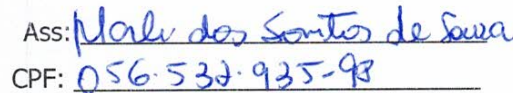 Ass: Marli dos Santos de Souza
CPF: 056.532.935-98